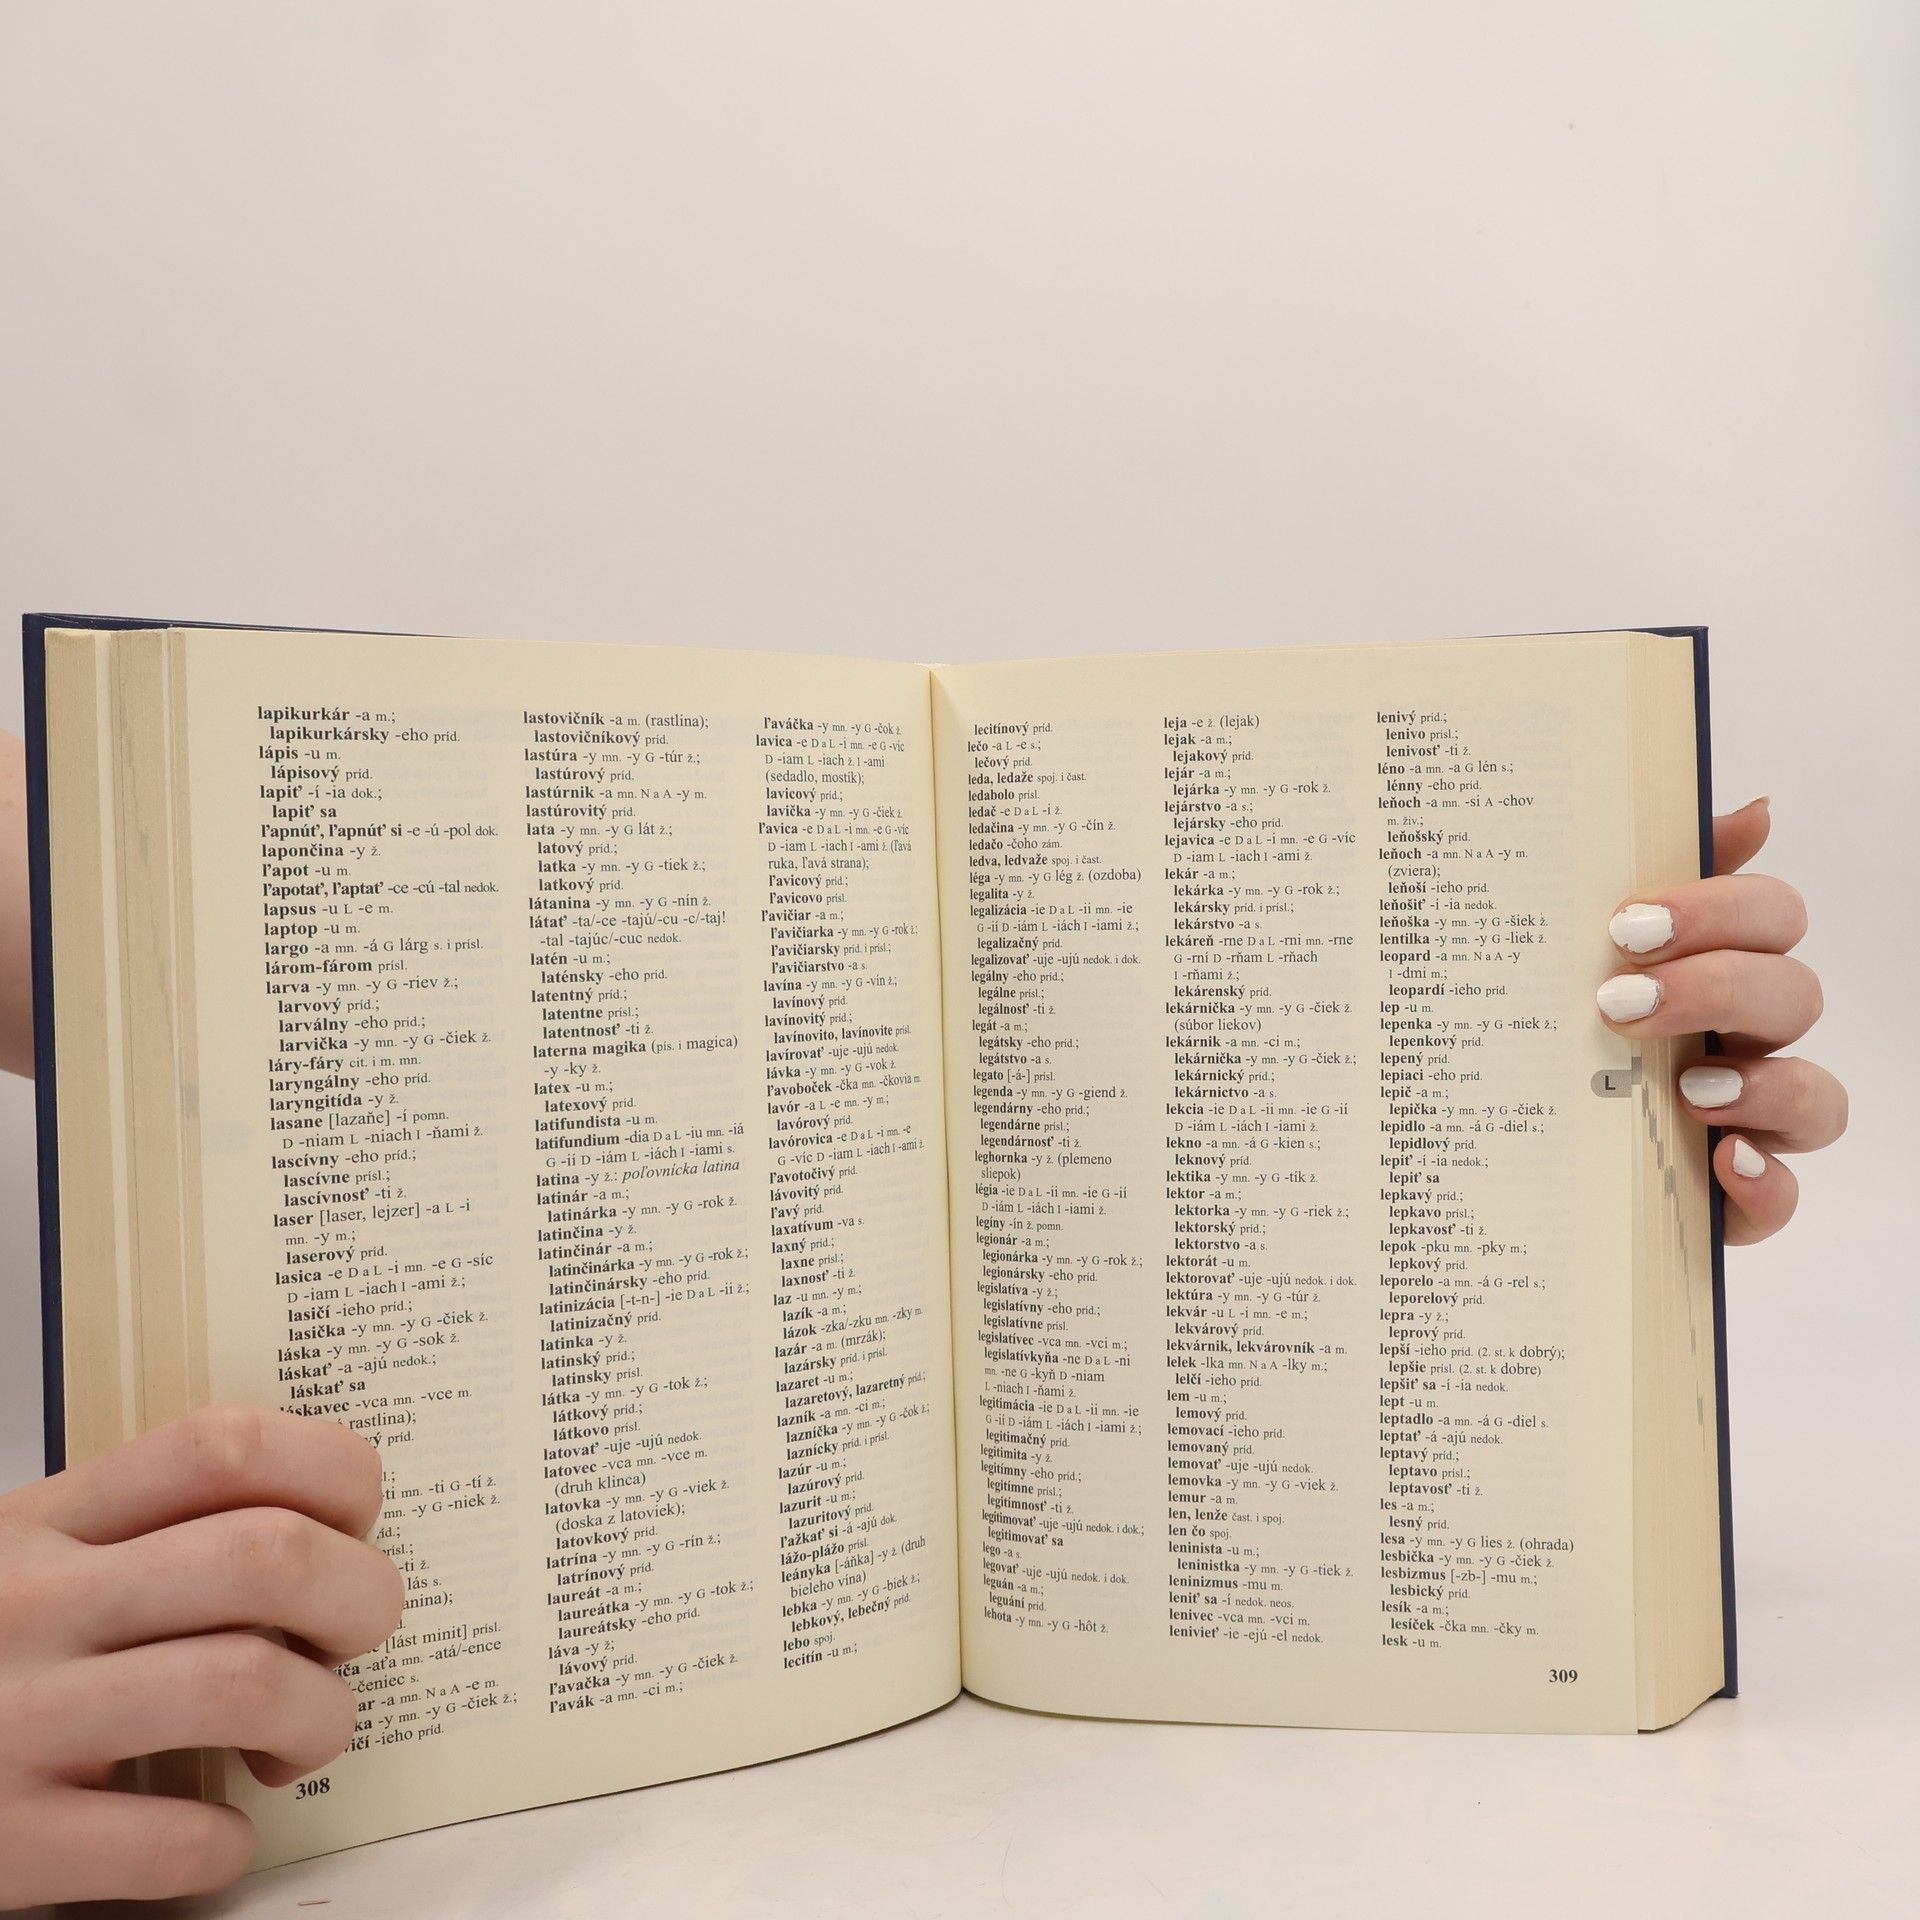 lapikurkár -a m.;
lapikurkársky -eho príd.
lápis -u m.
lápisový príd.
lapiť -í -ia dok.;
lapiť sa
ľapnúť, ľapnúť si -e -ú -pol dok.
lapončina -y ž.
ľapot -u m.
ľapotať, ľaptať -ce -cú -tal nedok.
lapsus -u L -e m.
laptop -u m.
largo -a mn. -á G lárg s. i prísl.
lárom-fárom prísl.
larva -y mn. -y G -riev ž.;
larvový príd.;
larválny -eho príd.;
larvička -y mn. -y G -čiek ž.
láry-fáry cit. i m. mn.
laryngálny -eho príd.
laryngitída -y ž.
lasane [lazaňe] -í pomn.
D -niam L -niach I -ňami ž.
lascívny -eho príd.;
lascívne prísl.;
lascívnosť -ti ž.
laser [laser, lejzer] -a L -i
mn. -y m.;
laserový príd.
lasica -e D a L -i mn. -e G -síc
D -iam L -iach I -ami ž.;
lasičí -ieho príd.;
lasička -y mn. -y G -čiek ž.
láska -y mn. -y G -sok ž.
láskať -a -ajú nedok.;
láskať sa
láskavec -vca mn. -vce m.
rastlina);
príd.
-ti mn. -ti G -tí ž.
mn. -y G -niek ž.
-ti ž.
lás s.
[lást minit] prísl.
-aťa mn. -atá/-ence
-čeniec s.
-a mn. N a A -e m.
-y mn. -y G -čiek ž.;
-ieho príd.
308
lastovičník -a m. (rastlina);
lastovičníkový príd.
lastúra -y mn. -y G -túr ž.;
lastúrový príd.
lastúrnik -a mn. N a A -y m.
lastúrovitý príd.
lata -y mn. -y G lát ž.;
latový príd.;
latka -y mn. -y G -tiek ž.;
latkový príd.
látanina -y mn. -y G -nín ž.
látať -ta/-ce -tajú/-cu -c/-taj!
-tal -tajúc/-cuc nedok.
latén -u m.;
laténsky -eho príd.
latentný príd.;
latentne prísl.;
latentnosť -ti ž.
laterna magika (pís. i magica)
-y -ky ž.
latex -u m.;
latexový príd.
latifundista -u m.
latifundium -dia D a L -iu mn. -iá
G -ií D -iám L -iách I -iami s.
latina -y ž.: poľovnícka latina
latinár -a m.;
latinárka -y mn. -y G -rok ž.
latinčina -y ž.
latinčinár -a m.;
latinčinárka -y mn. -y G -rok ž.;
latinčinársky -eho príd.
latinizácia [-t-n-] -ie D a L -ii ž.;
latinizačný príd.
latinka -y ž.
latinský príd.;
latinsky prísl.
látka -y mn. -y G -tok ž.;
látkový príd.;
látkovo prísl.
latovať -uje -ujú nedok.
latovec -vca mn. -vce m.
(druh klinca)
latovka -y mn. -y G -viek ž.
(doska z latoviek);
latovkový príd.
latrína -y mn. -y G -rín ž.;
latrínový príd.
laureát -a m.;
laureátka -y mn. -y G -tok ž.;
laureátsky -eho príd.
láva -y ž;
lávový príd.
ľavačka -y mn. -y G -čiek ž.
ľavák -a mn. -ci m.;
ľaváčka -y mn. -y G -čok ž.
lavica -e D a L -i mn. -e G -víc
D -iam L -iach ž. I -ami
(sedadlo, mostík);
lavicový príd.;
lavička -y mn. -y G -čiek ž.
ľavica -e D a L -i mn. -e G -víc
D -iam L -iach I -ami ž. (ľavá
ruka, ľavá strana);
ľavicový príd.;
ľavicovo prísl.
ľavičiar -a m.;
ľavičiarka -y mn. -y G -rok ž.;
ľavičiarsky príd. i prísl.;
ľavičiarstvo -a s.
lavína -y mn. -y G -vín ž.;
lavínový príd.
lavínovitý príd.;
lavínovito, lavínovite prísl.
lavírovať -uje -ujú nedok.
lávka -y mn. -y G -vok ž.
ľavoboček -čka mn. -čkovia m.
lavór -a L -e mn. -y m.;
lavórový príd.
lavórovica -e D a L -i mn. -e
G -víc D -iam L -iach I -ami ž.
ľavotočivý príd.
lávovitý príd.
ľavý príd.
laxatívum -va s.
laxný príd.;
laxne prísl.;
laxnosť -ti ž.
laz -u mn. -y m.;
lazík -a m.;
lázok -zka/-zku mn. -zky m.
lazár -a m. (mrzák);
lazársky príd. i prísl.
lazaret -u m.;
lazaretový, lazaretný príd.;
lazník -a mn. -ci m.;
laznička -y mn. -y G -čok ž.;
laznícky príd. i prísl.
lazúr -u m.;
lazúrový príd.
lazurit -u m.;
lazuritový príd.
ľažkať si -á -ajú dok.
lážo-plážo prísl.
leányka [-áňka] -y ž. (druh
bieleho vína)
lebka -y mn. -y G -biek ž.;
lebkový, lebečný príd.
lebo spoj.
lecitín -u m.;
lecitínový príd.
lečo -a L -e s.;
lečový príd.
leda, ledaže spoj. i čast.
ledabolo prísl.
ledač -e D a L -i ž.
ledačina -y mn. -y G -čín ž.
ledačo -čoho zám.
ledva, ledvaže spoj. i čast.
léga -y mn. -y G lég ž. (ozdoba)
legalita -y ž.
legalizácia -ie D a L -ii mn. -ie
G -ií D -iám L -iách I -iami ž.;
legalizačný príd.
legalizovať -uje -ujú nedok. i dok.
legálny -eho príd.;
legálne prísl.;
legálnosť -ti ž.
legát -a m.;
legátsky -eho príd.;
legátstvo -a s.
legato [-á-] prísl.
legenda -y mn. -y G -giend ž.
legendárny -eho príd.;
legendárne prísl.;
legendárnosť -ti ž.
leghornka -y ž. (plemeno
sliepok)
légia -ie D a L -ii mn. -ie G -ií
D -iám L -iách I -iami ž.
legíny -ín ž. pomn.
legionár -a m.;
legionárka -y mn. -y G -rok ž.;
legionársky -eho príd.
legislatíva -y ž.;
legislatívny -eho príd.;
legislatívne prísl.
legislatívec -vca mn. -vci m.;
legislatívkyňa -ne D a L -ni
mn. -ne G -kyň D -niam
L -niach I -ňami ž.
legitimácia -ie D a L -ii mn. -ie
G -ií D -iám L -iách I -iami ž.;
legitimačný príd.
legitimita -y ž.
legitímny -eho príd.;
legitímne prísl.;
legitímnosť -ti ž.
legitimovať -uje -ujú nedok. i dok.;
legitimovať sa
lego -a s.
legovať -uje -ujú nedok. i dok.
leguán -a m.;
leguání príd.
lehota -y mn. -y G -hôt ž.
leja -e ž. (lejak)
lejak -a m.;
lejakový príd.
lejár -a m.;
lejárka -y mn. -y G -rok ž.
lejárstvo -a s.;
lejársky -eho príd.
lejavica -e D a L -i mn. -e G -víc
D -iam L -iach I -ami ž.
lekár -a m.;
lekárka -y mn. -y G -rok ž.;
lekársky príd. i prísl.;
lekárstvo -a s.
lekáreň -rne D a L -rni mn. -rne
G -rní D -rňam L -rňach
I -rňami ž.;
lekárenský príd.
lekárnička -y mn. -y G -čiek ž.
(súbor liekov)
lekárnik -a mn. -ci m.;
lekárnička -y mn. -y G -čiek ž.;
lekárnický príd.;
lekárnictvo -a s.
lekcia -ie D a L -ii mn. -ie G -ií
D -iám L -iách I -iami ž.
lekno -a mn. -á G -kien s.;
leknový príd.
lektika -y mn. -y G -tík ž.
lektor -a m.;
lektorka -y mn. -y G -riek ž.;
lektorský príd.;
lektorstvo -a s.
lektorát -u m.
lektorovať -uje -ujú nedok. i dok.
lektúra -y mn. -y G -túr ž.
lekvár -u L -i mn. -e m.;
lekvárový príd.
lekvárnik, lekvárovník -a m.
lelek -lka mn. N a A -lky m.;
lelčí -ieho príd.
lem -u m.;
lemový príd.
lemovací -ieho príd.
lemovaný príd.
lemovať -uje -ujú nedok.
lemovka -y mn. -y G -viek ž.
lemur -a m.
len, lenže čast. i spoj.
len čo spoj.
leninista -u m.;
leninistka -y mn. -y G -tiek ž.
leninizmus -mu m.
leniť sa -í nedok. neos.
lenivec -vca mn. -vci m.
lenivieť -ie -ejú -el nedok.
lenivý príd.;
lenivo prísl.;
lenivosť -ti ž.
léno -a mn. -a G lén s.;
lénny -eho príd.
leňoch -a mn. -si A -chov
m. živ.;
leňošský príd.
leňoch -a mn. N a A -y m.
(zviera);
leňoší -ieho príd.
leňošiť -í -ia nedok.
leňoška -y mn. -y G -šiek ž.
lentilka -y mn. -y G -liek ž.
leopard -a mn. N a A -y
I -dmi m.;
leopardí -ieho príd.
lep -u m.
lepenka -y mn. -y G -niek ž.;
lepenkový príd.
lepený príd.
lepiaci -eho príd.
lepič -a m.;
lepička -y mn. -y G -čiek ž.
lepidlo -a mn. -á G -diel s.;
lepidlový príd.
lepiť -í -ia nedok.;
lepiť sa
lepkavý príd.;
lepkavo prísl.;
lepkavosť -ti ž.
lepok -pku mn. -pky m.;
lepkový príd.
leporelo -a mn. -á G -rel s.;
leporelový príd.
lepra -y ž.;
leprový príd.
lepší -ieho príd. (2. st. k dobrý);
lepšie prísl. (2. st. k dobre)
lepšiť sa -í -ia nedok.
lept -u m.
leptadlo -a mn. -á G -diel s.
leptať -á -ajú nedok.
leptavý príd.;
leptavo prísl.;
leptavosť -ti ž.
les -a m.;
lesný príd.
lesa -y mn. -y G lies ž. (ohrada)
lesbička -y mn. -y G -čiek ž.
lesbizmus [-zb-] -mu m.;
lesbický príd.
lesík -a m.;
lesíček -čka mn. -čky m.
lesk -u m.
309
L